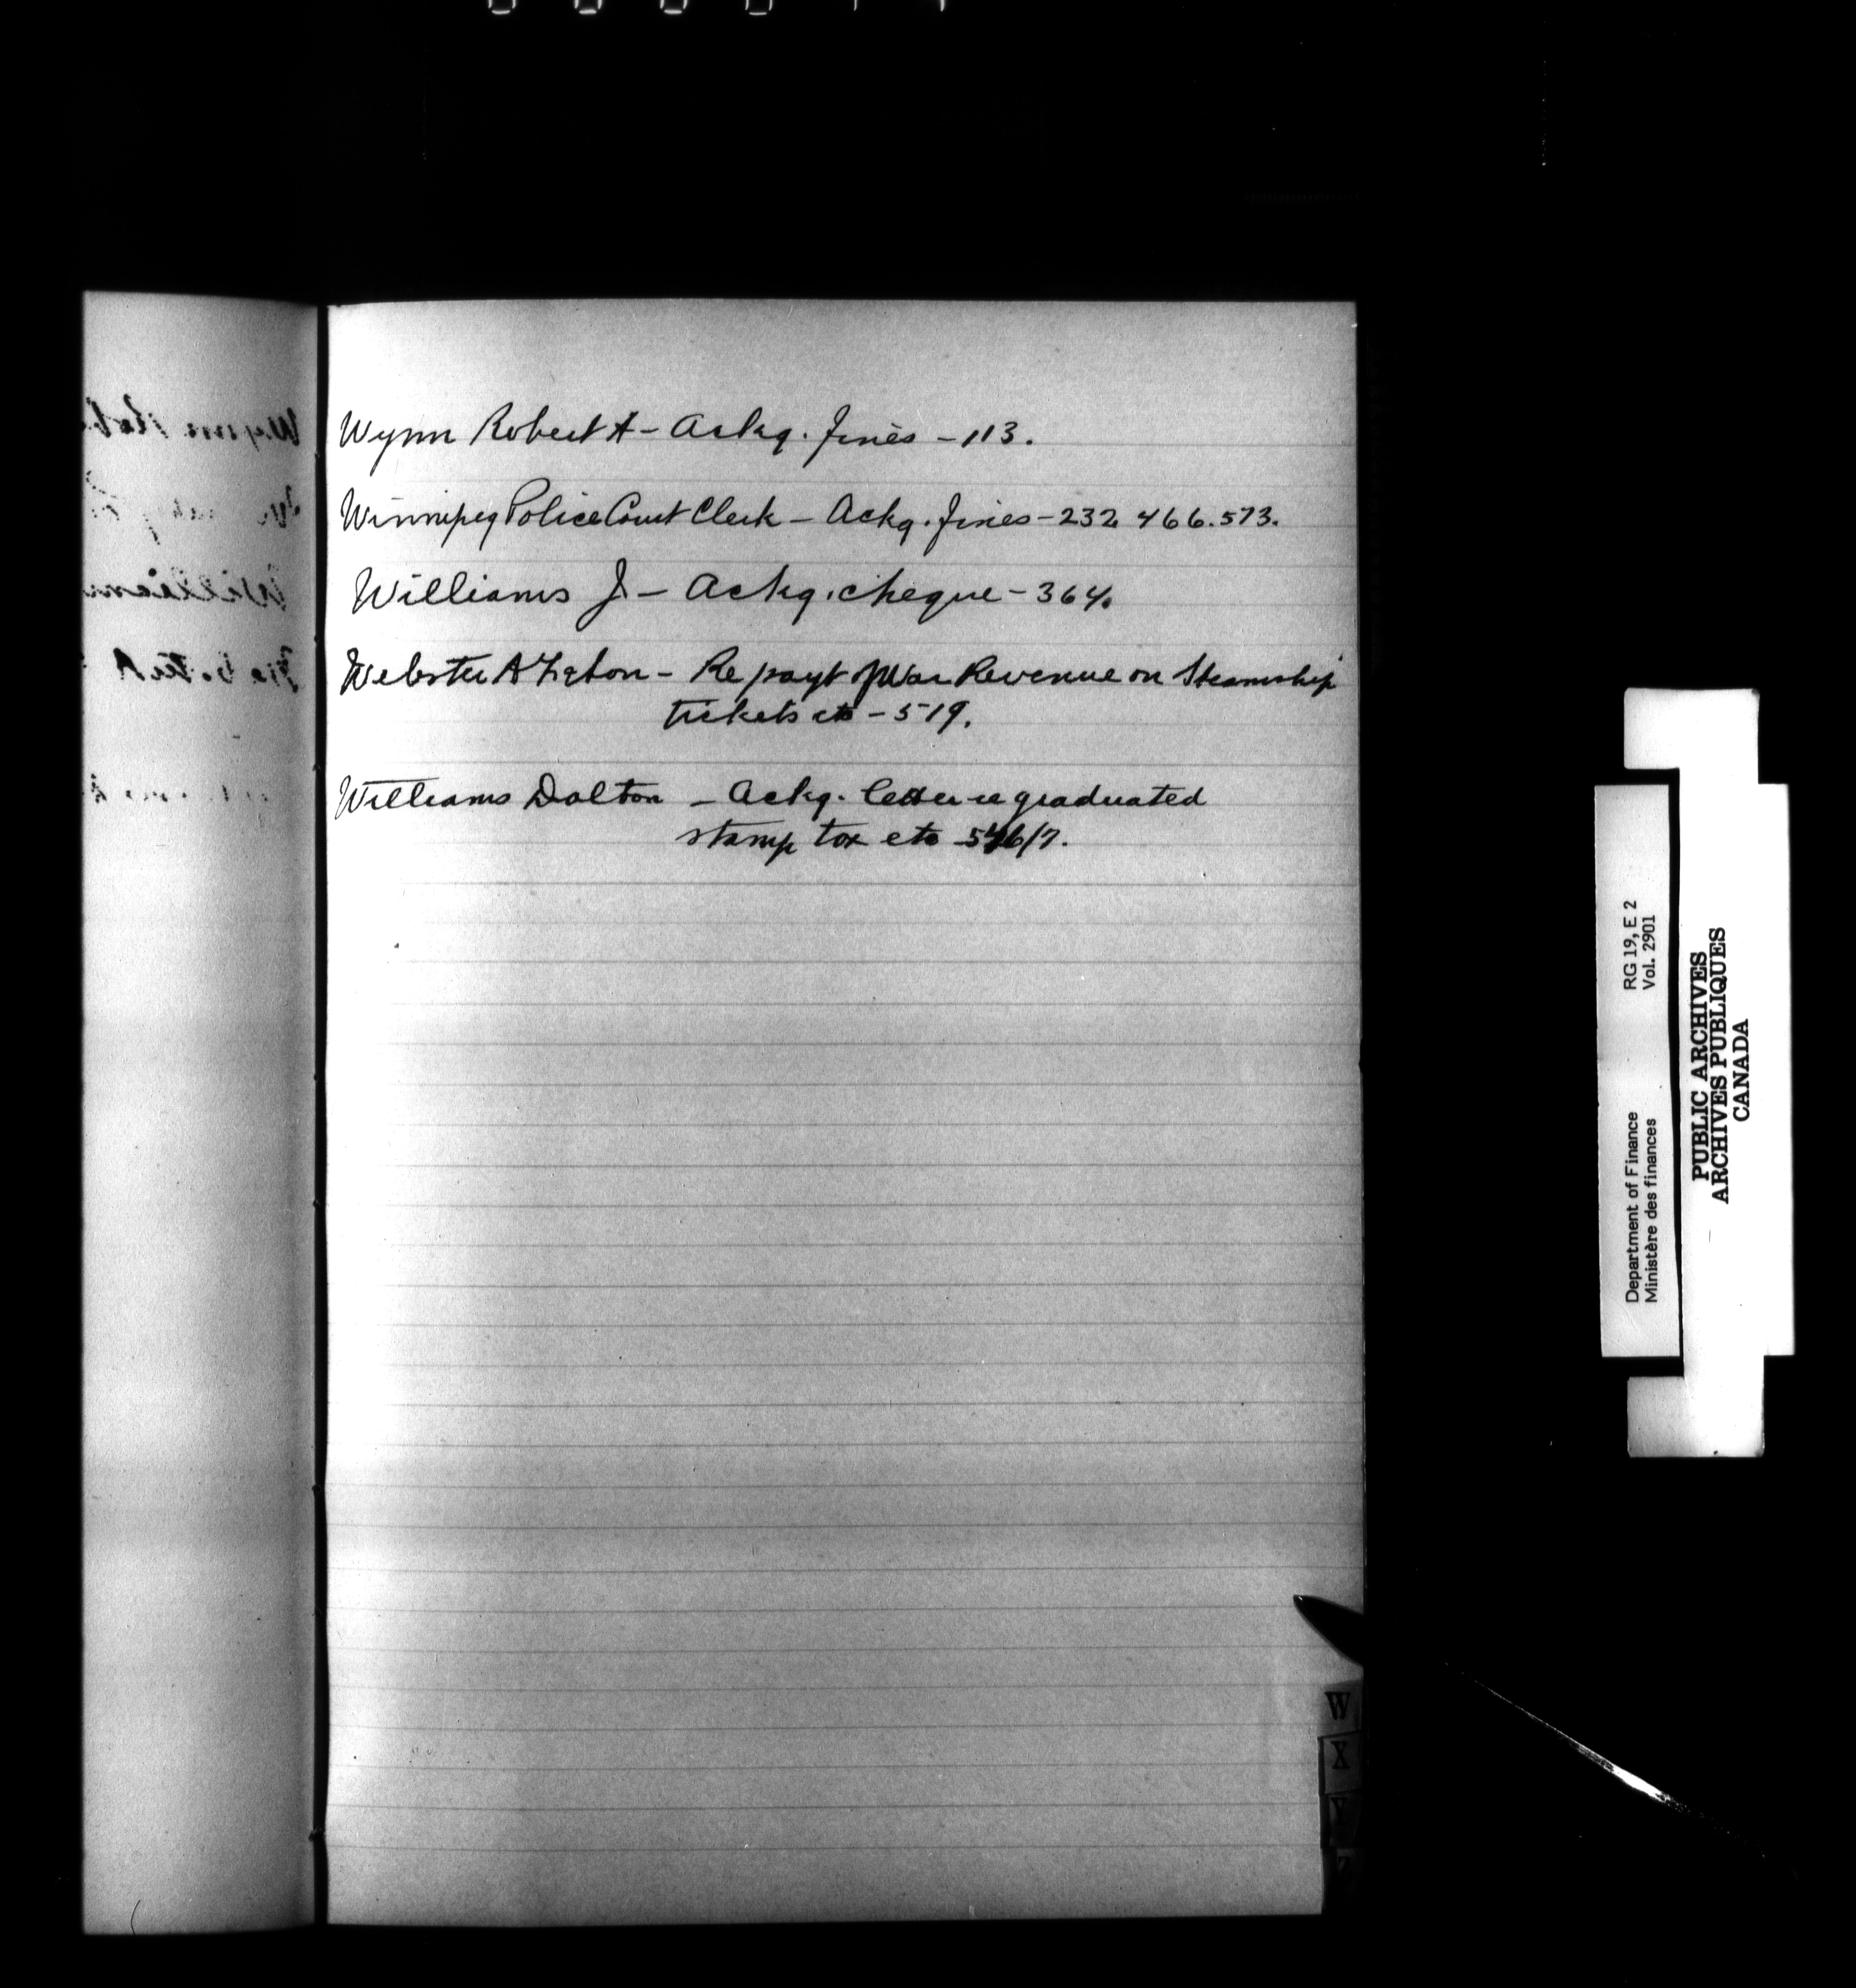 Wynn Robert A – Ackg. fines – 113.
Winnipeg Police Court Clerk – Ackg. fines – 232. 466. 573.
Williams J – Ackg. cheque – 364.
Webster A – Re payt of War Revenue on Steamship
tickets etc – 519.
Williams Dalton – Ackg. letter re graduated
stamp tax etc – 546/7.
W
X
Y
Z
RG 19, E 2
Vol. 2901
Department of Finance
Ministère des finances
PUBLIC ARCHIVES
ARCHIVES PUBLIQUES
CANADA